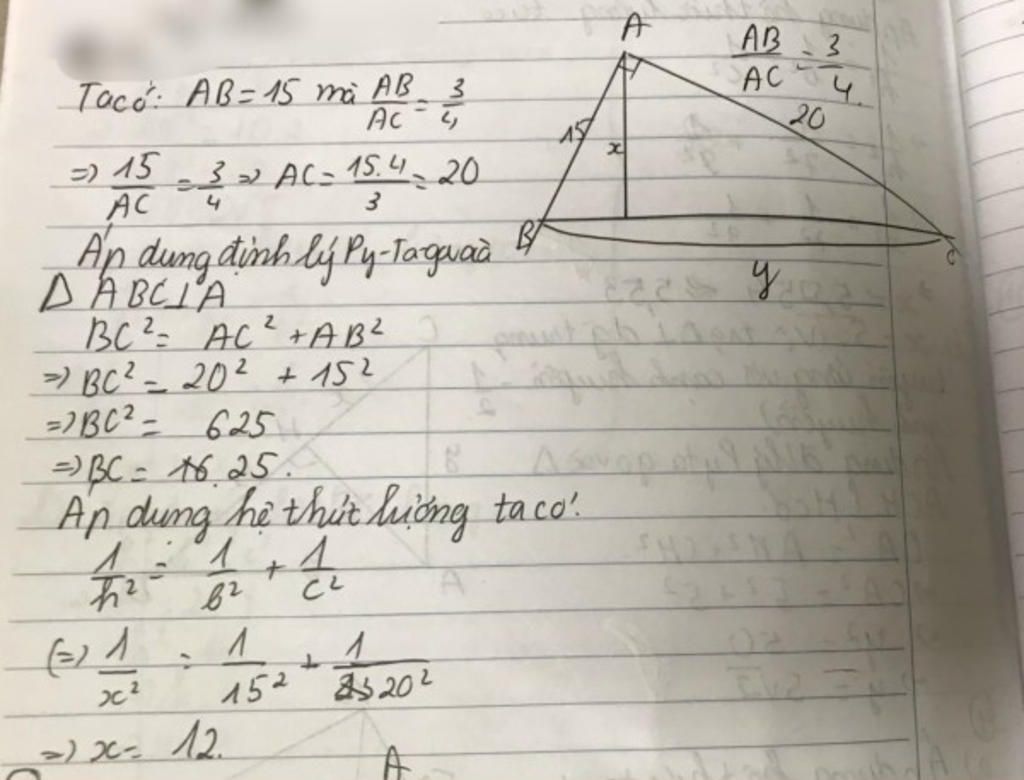 Ta có: AB = 15 mà AB/AC = 3/4
=> 15/AC = 3/4 => AC = 15.4/3 = 20
Áp dụng định lý Py-Ta-go vào
Δ ABC⊥A
BC² = AC² + AB²
=> BC² = 20² + 15²
=> BC² = 625
=> BC = 25.
Áp dụng hệ thức lượng ta có:
1/h² = 1/b² + 1/c²
(=) 1/x² = 1/15² + 1/20²
=> x = 12.
A
AB/AC = 3/4.
15
x
20
B
C
y
A